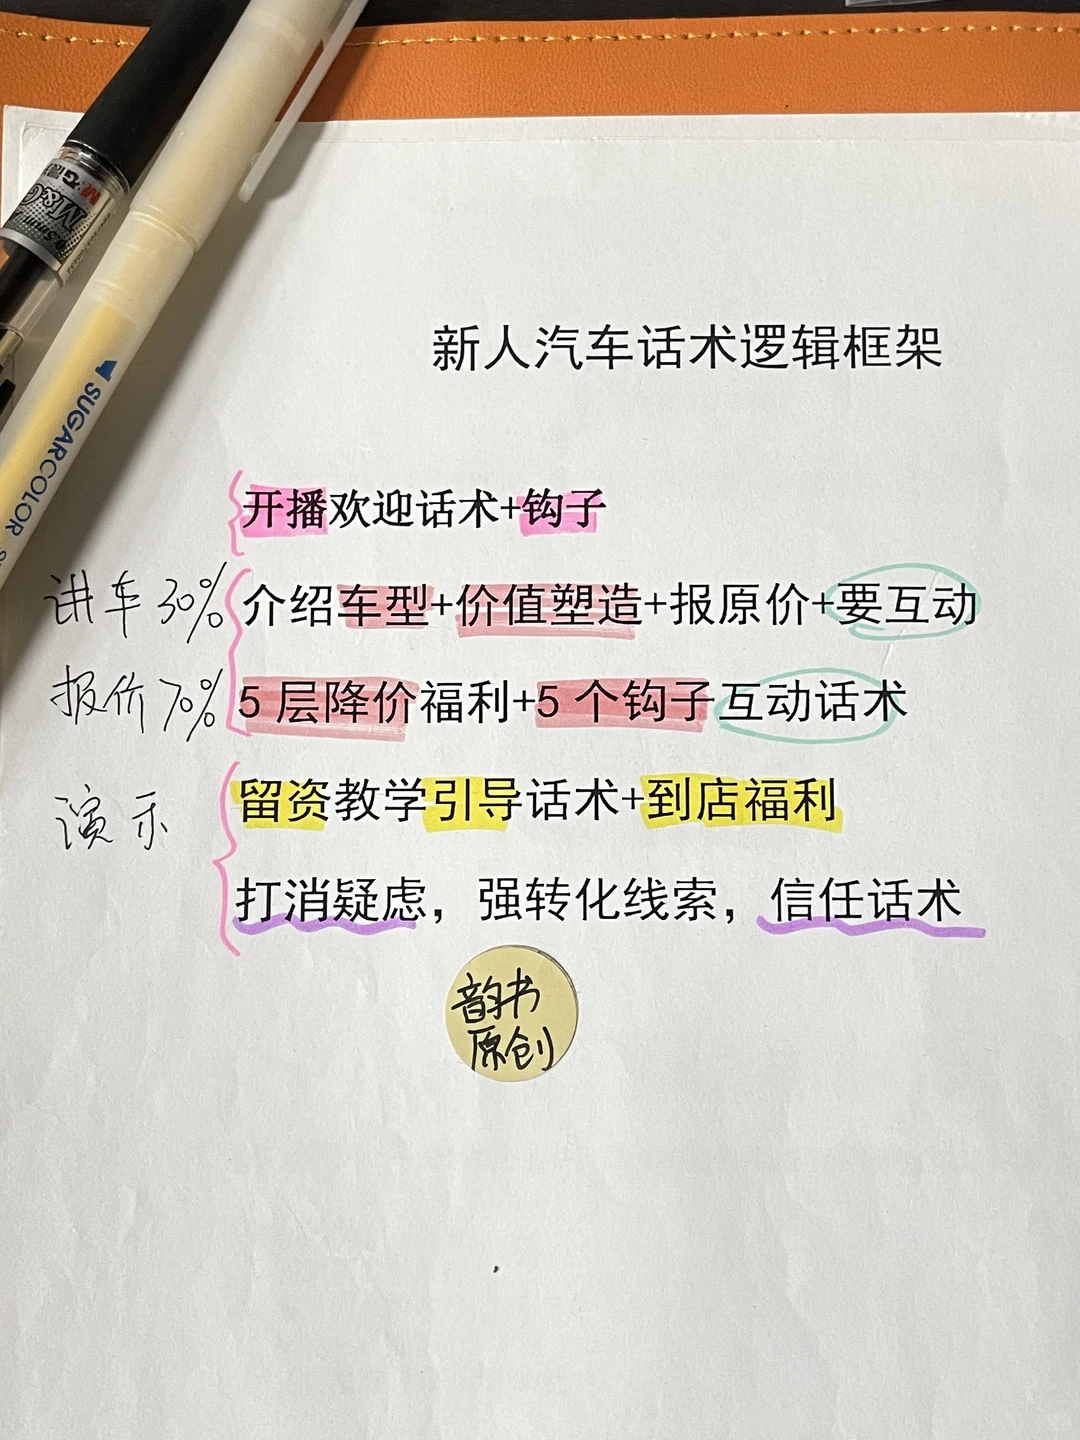 M&G
0.5mm
SUGARCOLOR
新人汽车话术逻辑框架
开播欢迎话术+钩子
讲车30% 介绍车型+价值塑造+报原价+要互动
报价70% 5层降价福利+5个钩子互动话术
演示 留资教学引导话术+到店福利
打消疑虑，强转化线索，信任话术
韵书
原创